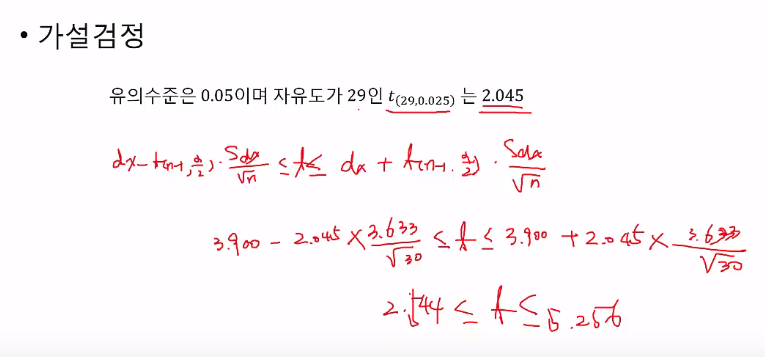 • 가설검정
유의수준은 0.05이며 자유도가 29인 t(29,0.025) 는 2.045
dx - t(n-1, α/2) · Sdx/√n ≤ t ≤ dx + t(n-1, α/2) · Sdx/√n
3.900 - 2.045 × 3.633/√30 ≤ t ≤ 3.900 + 2.045 × 3.633/√30
≤ t ≤ 5.256